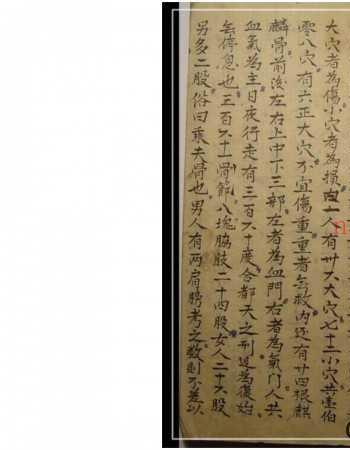 大穴者為傷小穴者為損凶一人有卅六大穴七十二小穴共壹伯
零八穴有六正大穴不宜傷重重者无救內还有廿四根麒
麟骨前後左右上中下三部左者為血門右者為氣門人共
血氣為主日夜行走有三百六十度合都天之刑迖為復始
无停息也三百六十一骨節八塊脇肢二十四股女人二十六股
另多二股俗曰乘夫骨也男人有兩肩膀考之数則不差以